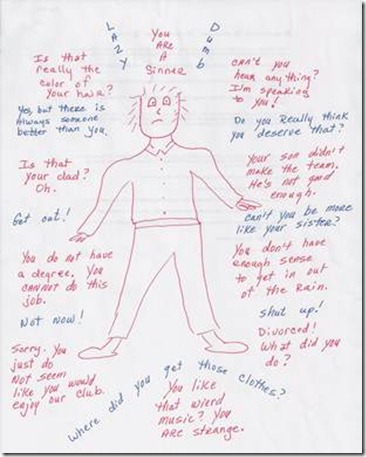 Lazy
You
ARE
A
Sinner
Dumb
Is that
really the
color of
your hair?
Yes, but there is
Always someone
better than you.
Is that
your dad?
Oh.
Get out!
You do not have
a degree. You
cannot do this
job.
Not now!
Sorry. You
just do
Not seem
like you would
enjoy our club.
can't you
hear anything?
I'm speaking
to you!
Do you Really think
you deserve that?
Your son didn't
make the team.
He's not good
enough.
can't you be more
like your sister?
You don't have
enough sense
to get in out
of the Rain.
shut up!
Divorced!
What did you
do?
where did you get those clothes?
You like
that wierd
music? You
ARE strange.